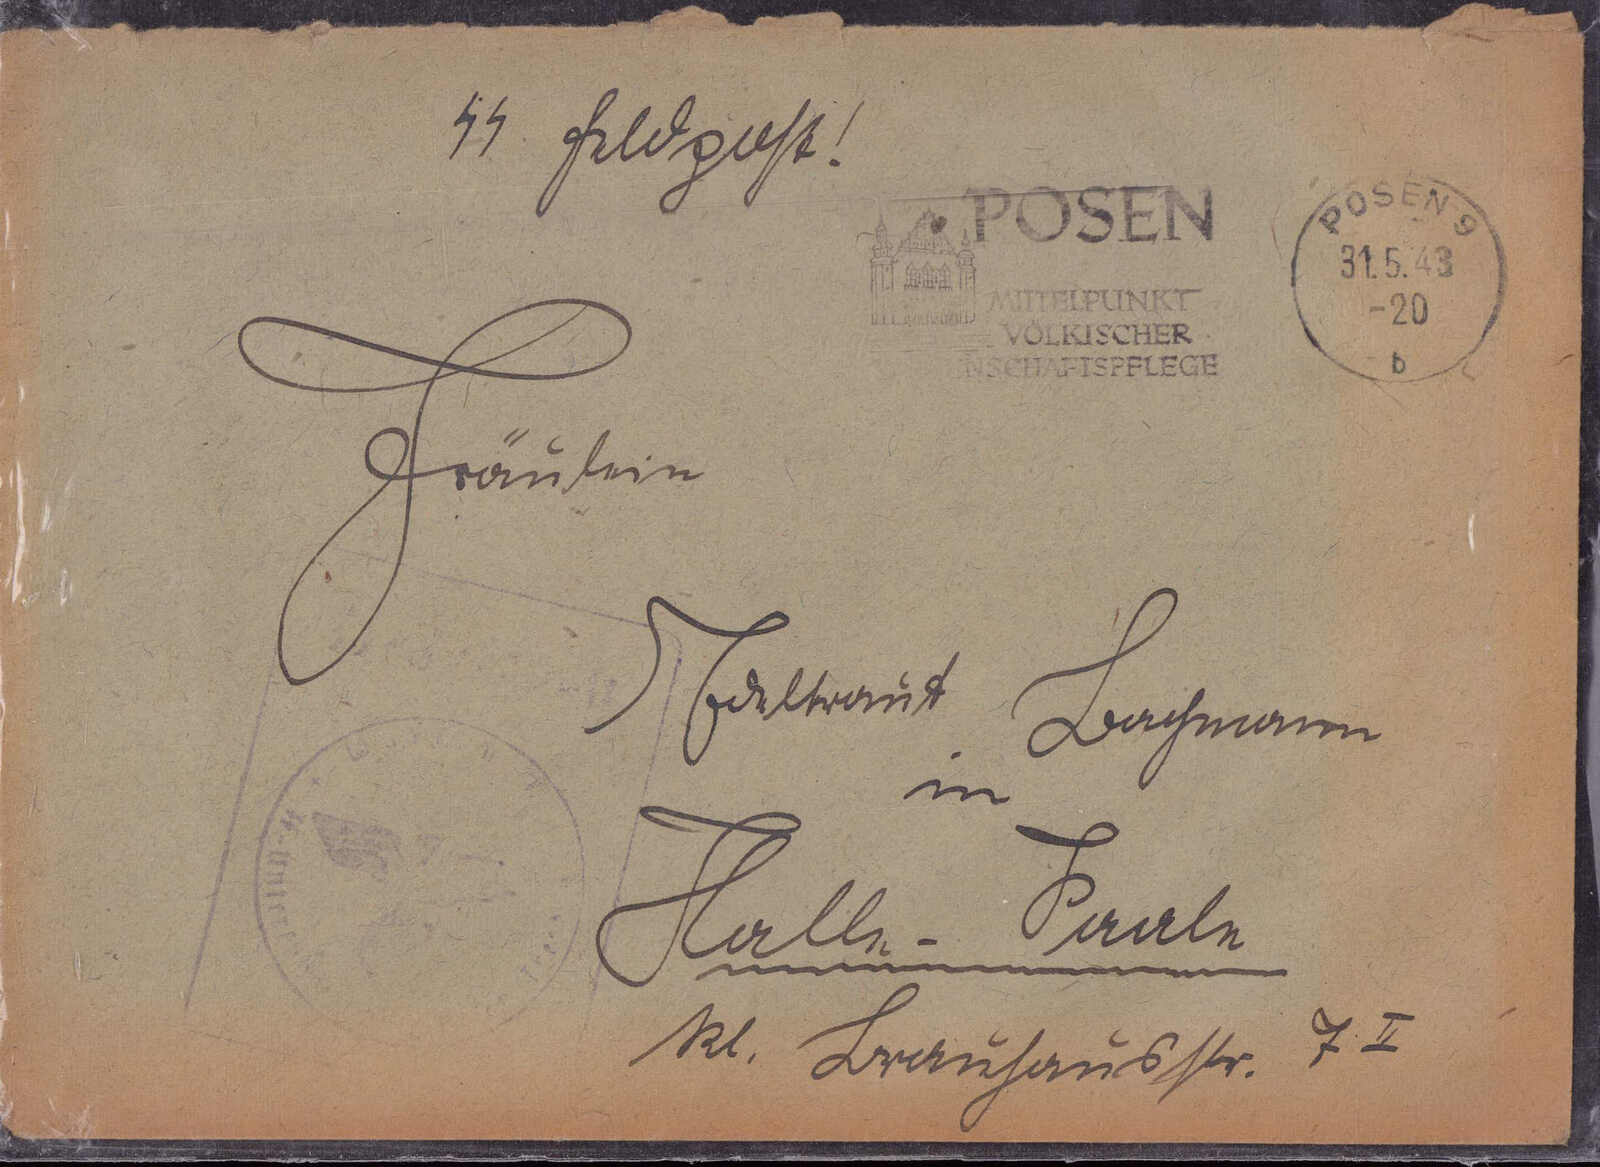 SS Feldpost!
POSEN
MITTELPUNKT
VÖLKISCHER
NSCHAFTSPFLEGE
POSEN 9
31.5.43
-20
b
Fräulein
Edeltraut Bachmann
in
Halle-Saale
Kl. Brauhausstr. 7 II